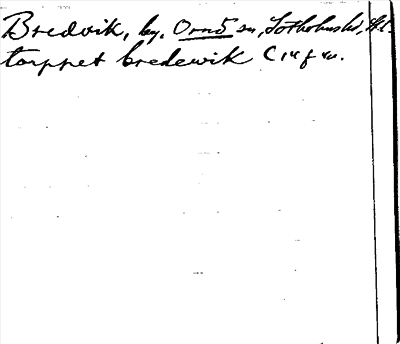 Bredvik, by, Ornö sn, Sotholms hd,
torppet bredewik C